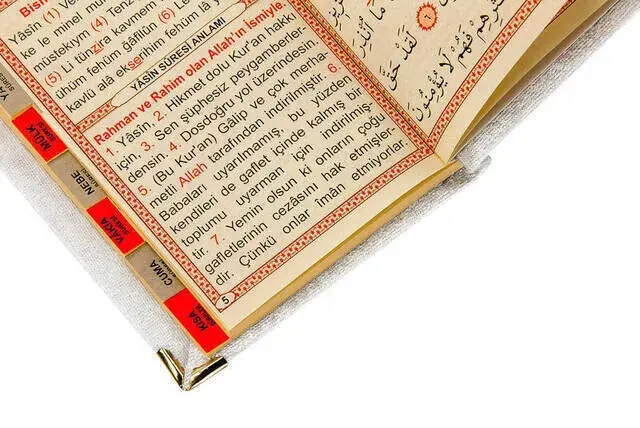 Bism
Yâsin (1) Ve
ke le minel mü
müstekıym (4) Tenz
(5) Li tünzira kavmem
ühüm fehüm ğâfilûn (6) Le
kavlü alâ ekserihim fehüm lâ y
YASİN SÛRESİ ANLAMI
Rahman ve Rahim olan Allah'ın İsmiyle.
1. Yâsin. 2. Hikmet dolu Kur'an hakkı
için. 3. Sen şüphesiz peygamberler-
densin. 4. Dosdoğru yol üzerindesin.
5. (Bu Kur'an) Gâlip ve çok merha-
metli Allah tarafından indirilmiştir. 6.
Babaları uyarılmamış, bu yüzden
kendileri de gaflet içinde kalmış bir
toplumu uyarman için indirilmiş-
tir. 7. Yemin olsun ki onların çoğu
gafletlerinin cezâsını hak etmişler-
dir. Çünkü onlar îmân etmiyorlar.
5
لَقَدْ حَقَّ
فَهُمْ لَا يُؤْمِنُونَ
YA
SÛRESİ
MÜLK
SÛRESİ
NEBE
SÛRESİ
VAKIA
SÛRESİ
CUMA
KISA
SÛRELER